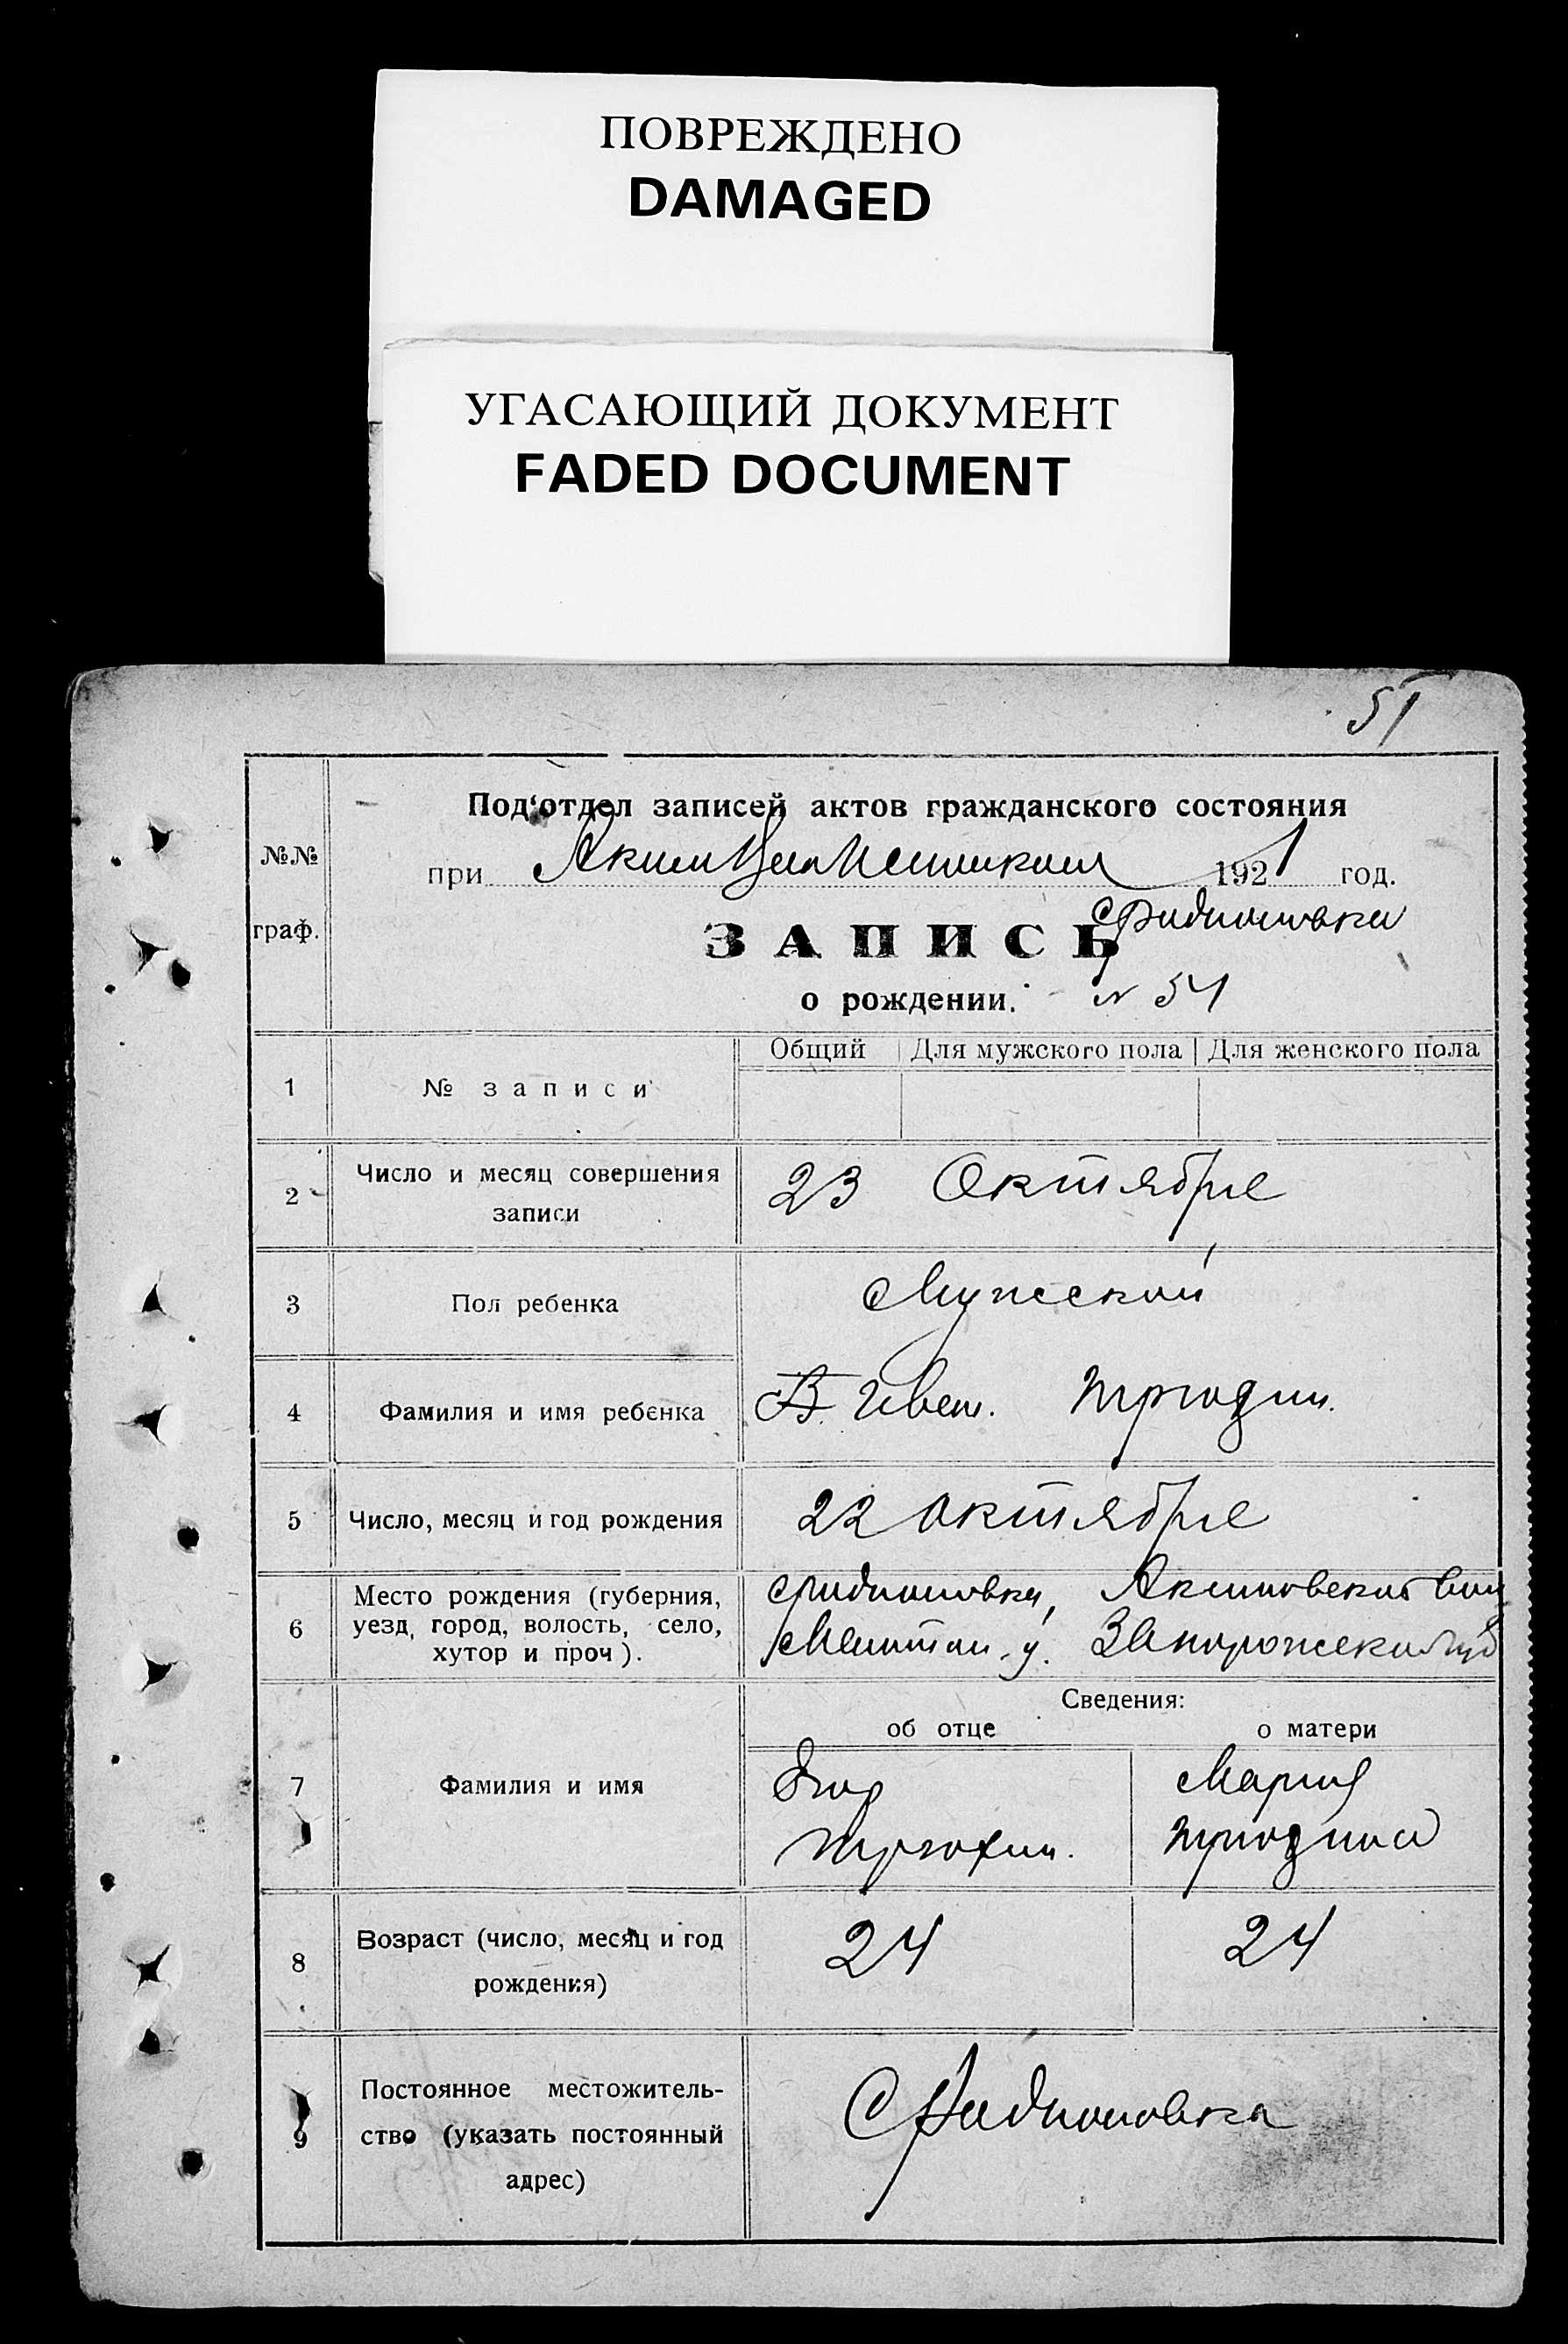 ПОВРЕЖДЕНО
DAMAGED
УГАСАЮЩИЙ ДОКУМЕНТ
FADED DOCUMENT
51
Под'отдел записей актов гражданского состояния
№№
при 1921 год.
граф.
ЗАПИСЬ
с Радионовка
о рождении. N 51
Общий Для мужского пола Для женского пола
1 № записи
2 Число и месяц совершения записи
23 Октября
3 Пол ребенка
Мужской
4 Фамилия и имя ребенка
5 Число, месяц и год рождения
22 октября
6 Место рождения (губерния,
уезд, город, волость, село,
хутор и проч).
с Радионовка, Акимовской
Мелитоп. у. Запорожской губ
Сведения:
об отце о матери
7 Фамилия и имя
Мария
8 Возраст (число, месяц и год
рождения)
24 24
9 Постоянное местожитель-
ство (указать постоянный
адрес)
С Радионовка